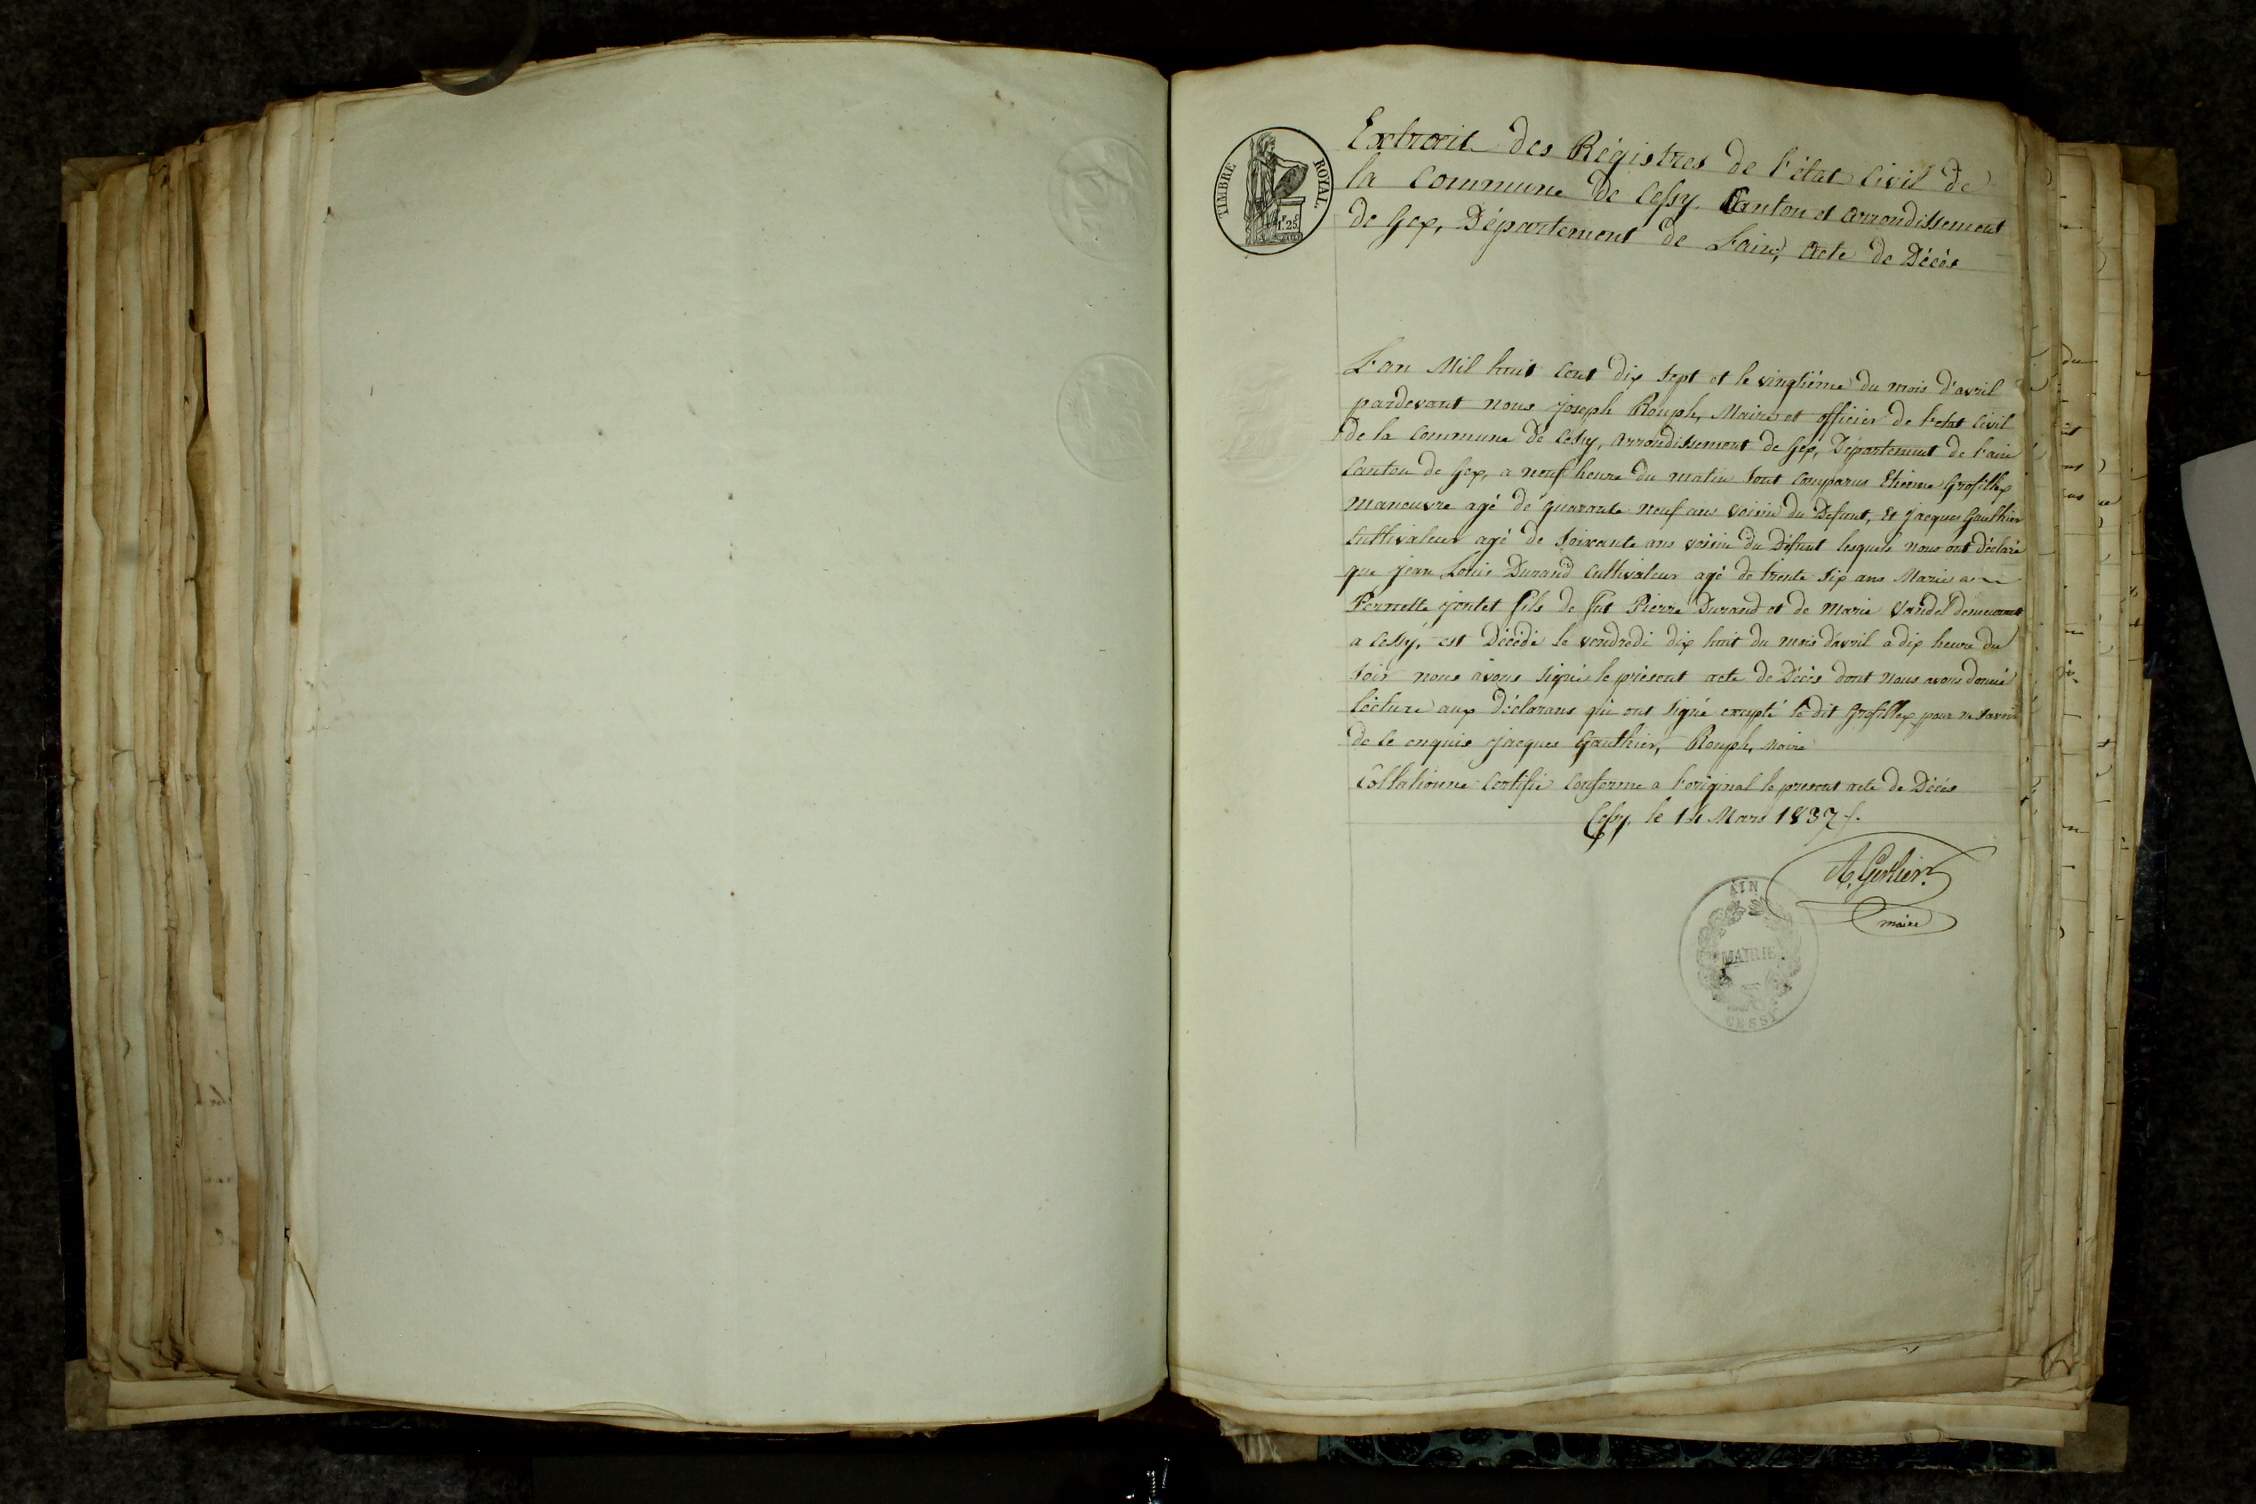 TIMBRE ROYAL
1.F 25.C
Extrait des Régistres de l'état Civil de
la Commune de Cessy Canton et Arrondissement
de Gex, Département de L'ain, Acte de Décès
L'an Mil huit Cent dix sept et le vingtiéme du mois d'avril
pardevant nous joseph Rouph, Maire et officier de l'etat Civil
de la Commune de Cessy, arrondissement de Gex, Département de l'ain
Canton de Gex, a neuf heure du matin sont comparus Etienne Grosfillex
manoeuvre agé de quarante neuf ans voisin du Defunt, Et jacques Gauthier
Cultivateur agé de soixante ans voisin du Défunt lesquels nous ont déclaré
que jean Louis Durand Cultivateur agé de trente six ans Marié a
Pernette fils de fut Pierre Durand et de Marie Vandel demeurant
a Cessy, est Décédé le vendredi dix huit du mois d'avril a dix heure du
soir nous avons signé le présent acte de Décès dont nous avons donné
lécture aux Déclarans qui ont signé excepté le dit Grosfillex pour ne savoir
de le enquis jacques Gauthier, Rouph, Maire
Collationné Certifié Conforme a l'original le present acte de Décés
Cessy, le 14 Mars 1837
A. Gerlier
maire
AIN
MAIRIE
CESSY